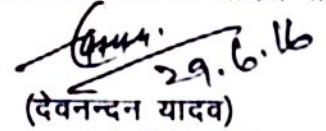 29.6.16
(देवनन्दन यादव)